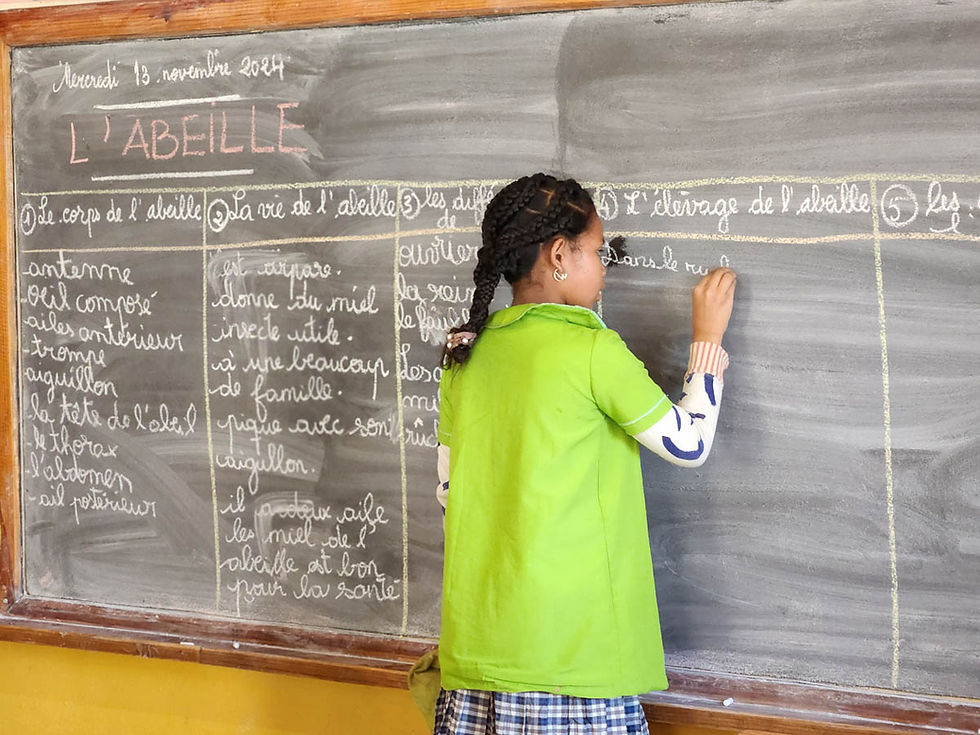 Mercredi 13 novembre 2024
L'ABEILLE
① Le corps de l'abeille
antenne
œil composé
ailes antérieur
trompe
aiguillon
la tête de l'abeil
le thorax
l'abdomen
ail potérieur
② La vie de l'abeille
est
donne du miel
insecte utile.
à une beaucoup
de famille.
pique avec son
aiguillon.
il a deux aile
les miel de l'
abeille est bon
pour la santé
③ les diffé
de
ouvrier
la rein
le
Les
④ L'élevage de l'abeille
Dans le
⑤ les